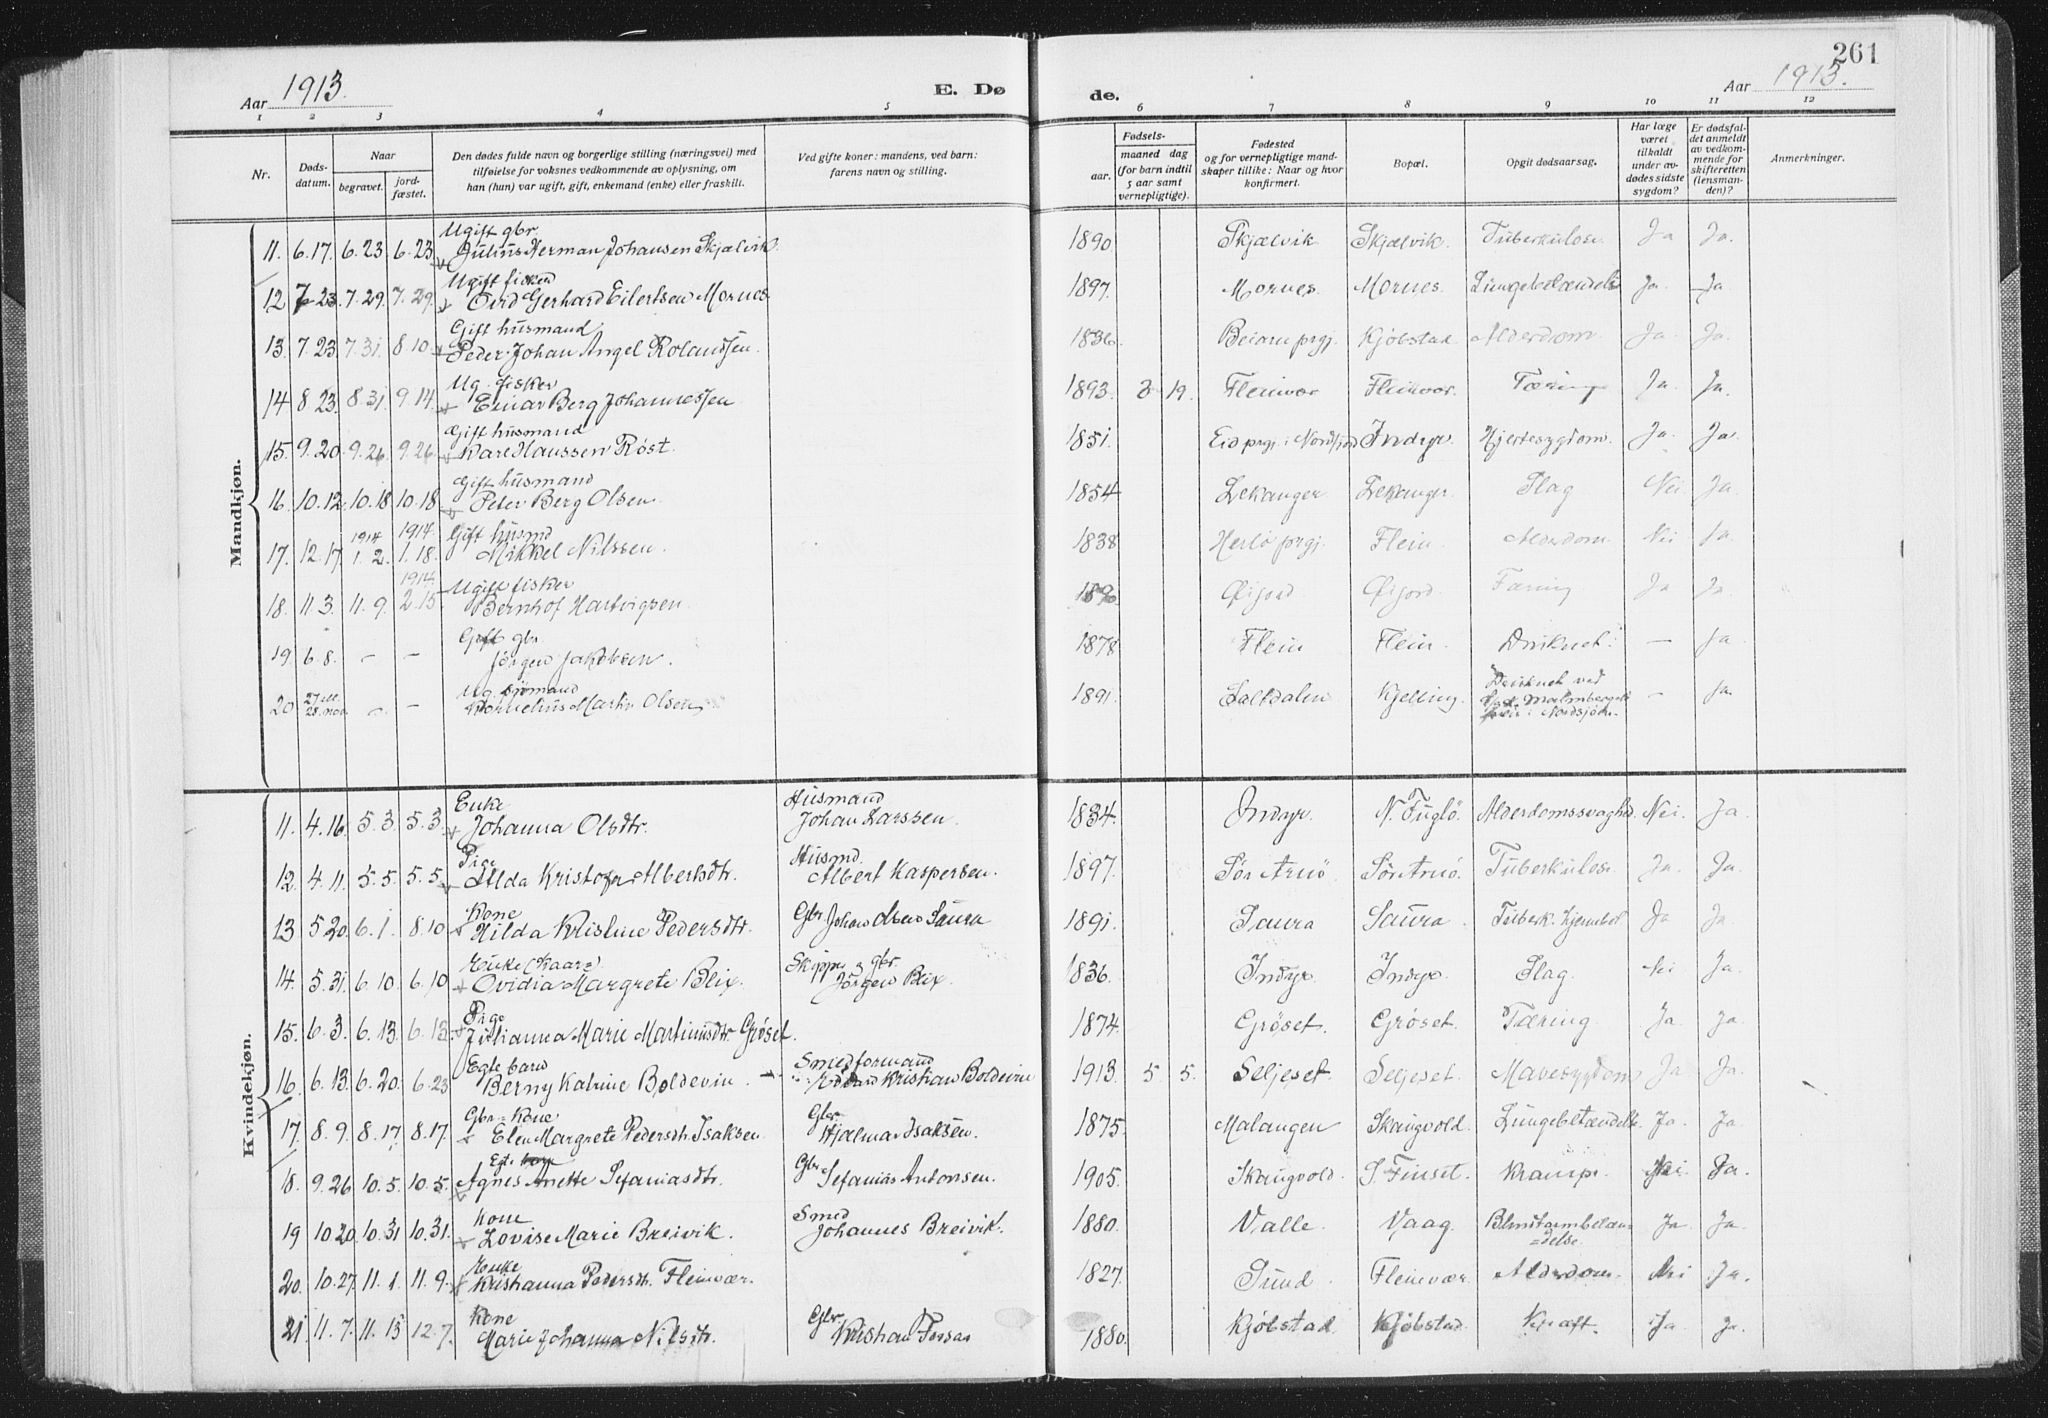 261
Aar 1913. E. Dø de. Aar 1913.
1 2 3 4 5 6 7 8 9 10 11 12
Nr. Døds-datum. Naar begravet. jord-fæstet. Den dødes fulde navn og borgerlige stilling (næringsvei) med tilføielse for voksnes vedkommende av oplysning, om han (hun) var ugift, gift, enkemand (enke) eller fraskilt. Ved gifte koner: mandens, ved barn: farens navn og stilling. Fødsels- aar. maaned dag (for barn indtil 5 aar samt vernepligtige). Fødested og for vernepligtige mand-skaper tillike: Naar og hvor konfirmert. Bopæl. Opgit dødsaarsag. Har læge været tilkaldt under av-dødes sidste sygdom? Er dødsfal-det anmeldt av vedkom-mende for skifteretten (lensman-den)? Anmerkninger.
Mandkjøn.
Ugift gbr.
11. 6.17. 6.23 6.23 Julius Herman Johansen Skjælvik. 1890 Skjælvik Skjælvik. Tuberkulose Ja Ja.
Ugift fisker
12 7.23. 7.29. 7.29. Gerhard Eilertsen Mornes 1897. Mornes Mornes. Ja. Ja
Gift husmand
13. 7.23 7.31 8.10 Peder Johan Angel Rolandsen. 1836. Beiarn prgj. Kjøbstad Alderdom Ja. Ja.
Ug. fisker
14 8.23. 8.31. 9.14. Einar Berg Johannessen 1893. 3 19. Fleinvær Fleinvær. Tæring Ja. Ja.
Gift husmand
15. 9.20. 9.26. 9.26. Kare Hanssen Røst. 1851. Eid prgj. i Nordfjord Indyr. Hjertesygdom. Ja. Ja.
Gift husmand
16. 10.12. 10.18 10.18. Peter Berg Olsen. 1854 Lekanger Lekanger. Slag Nei Ja.
1914 1914. Gift husmd
17. 12.17. 1.2. 1.18. Mikkel Nilssen. 1838 Herlø prgj. Flein. Alderdom Nei Ja.
1914. Ugift fisker
18. 11.3. 11.9. 2.15. Bernhof Hartvigsen. 1890 Øifjord Øifjord. Tæring Ja Ja.
Gift gbr.
19. 6.8. – – Jørgen Jakobsen. 1878. Flein Flein. Druknet – Ja.
Ug. sjømand
20 27 ell. 28. nov. – – Kornelius Martin Olsen 1891. Saltdalen Kjelling. Druknet ved Malmberget i Nordsjøen. – Ja.
Kvindekjøn.
Enke Husmand
11. 4.16. 5.3. 5.3. Johanna Olsdtr. Johan Larssen. 1834. Indyr. N. Fuglø. Alderdomssvaghed. Nei. Ja.
Pige Husmd.
12. 4.11. 5.5. 5.5. Alda Kristofa Albertsdtr. Albert Kaspersen. 1897. Sør Arnø Sør Arnø. Tuberkulose Ja. Ja.
Kone
13 5.20. 6.1. 8.10 Hilda Kristine Pedersdtr. Gbr. Johan Olsen Saura 1891. Saura Saura. Tuberk. Ja Ja.
Enke (Kaare) Skipper & gbr.
14. 5.31. 6.10 6.10 Ovidia Margrete Blix. Jørgen Blix. 1836. Indyr. Indyr. Slag. Nei Ja.
Pige
15. 6.3. 6.13 6.13. Johanna Marie Martinusdtr. Grøset. 1874. Grøset. Grøset. Tæring. Ja Ja.
Egte barn Smedformand
16. 6.13. 6.20. 6.23 Berny Katrine Boldevin. Edvard Kristian Boldevin 1913 5. 5. Seljeset. Seljeset. Mavesygdom Ja Ja.
Gbr. Kone Gbr.
17. 8.9. 8.17. 8.17. Elen Margrete Pedersdtr. Isaksen. Hjalmar Isaksen. 1875. Malangen Skaugvold. Lungebetændelse Ja. Ja.
Egte
18. 9.26. 10.5. 10.5. Agnes Anette Stefaniasdtr. Gbr. Stefanias Antonsen. 1905. Skaugvold S. Finset. Krampe. Nei. Ja.
Kone Smed
19 10.20. 10.31 10.31. Lovise Marie Breivik. Johannes Breivik. 1880. Valle. Vaag. Blindtarmbetæn=delse. Ja. Ja.
Enke
20. 10.27. 11.1. 11.9. Kristianna Pedersdtr. Fleinvær. 1827. Sund Fleinvær. Alderdom. Nei Ja.
Kone Gbr.
21. 11.7. 11.15 12.7. Marie Johanna Nilsdtr. Kristian 1880. Kjøbstad. Kjøbstad. Kræft. Ja. Ja.